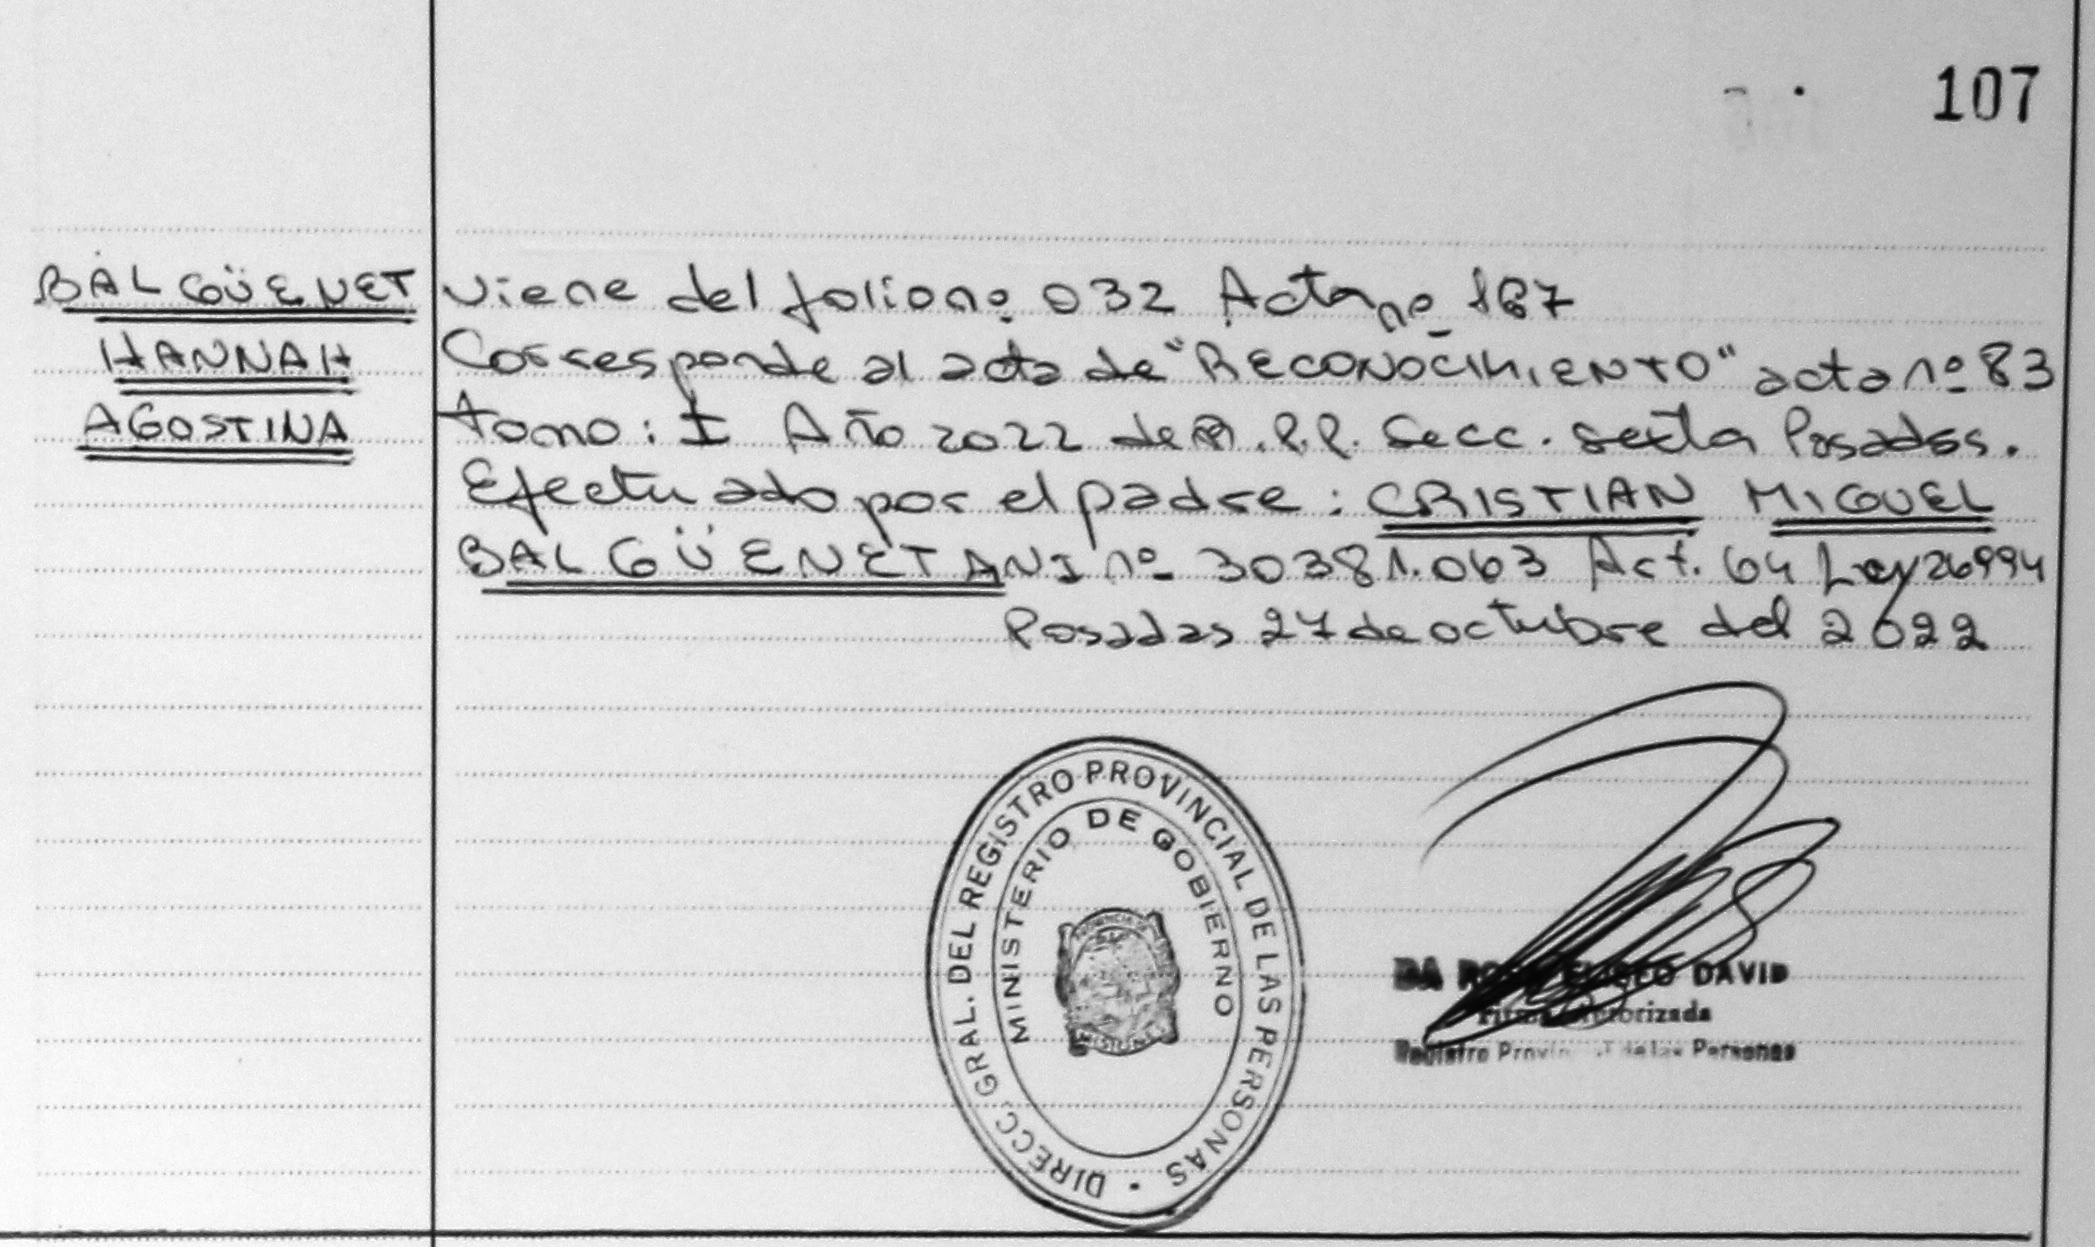 107
BALGÜENET
HANNAH
AGOSTINA
Viene del folio nº 032 Acta nº 167
Corresponde al acta de "RECONOCIMIENTO" acta nº 83
tomo: I Año 2022 de R.P.P. Secc. sexta Posadas.
Efectuado por el padre: CRISTIAN MIGUEL
BALGÜENET DNI nº 30381.063 Act. 64 Ley 26994
Posadas 27 de octubre del 2022
DIRECC. GRAL. DEL REGISTRO PROVINCIAL DE LAS PERSONAS
MINISTERIO DE GOBIERNO
DA ROSA ELISEO DAVID
Firma Autorizada
Registro Provincial de las Personas